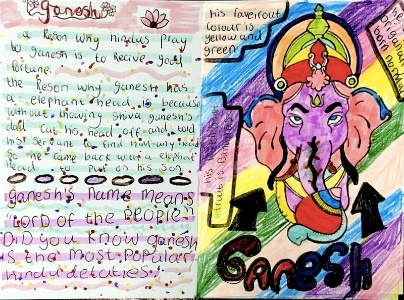 Ganesh
a Reson why hindus pray
to ganesh is to recive good
fortune.
the Reson why ganesh has
a elephant head is because
without knowing shiva ganesh's
dad cut his head off and told
his servant to find him any head
so he came back with a elephant
head to put on his son
ganesh's name means
"LORD OF THE PEOPLE"
Did you know ganesh
is the most popular
hindu
his faveirout
colour is
yellow and
green
his
fruit is Bananas
Ganesh